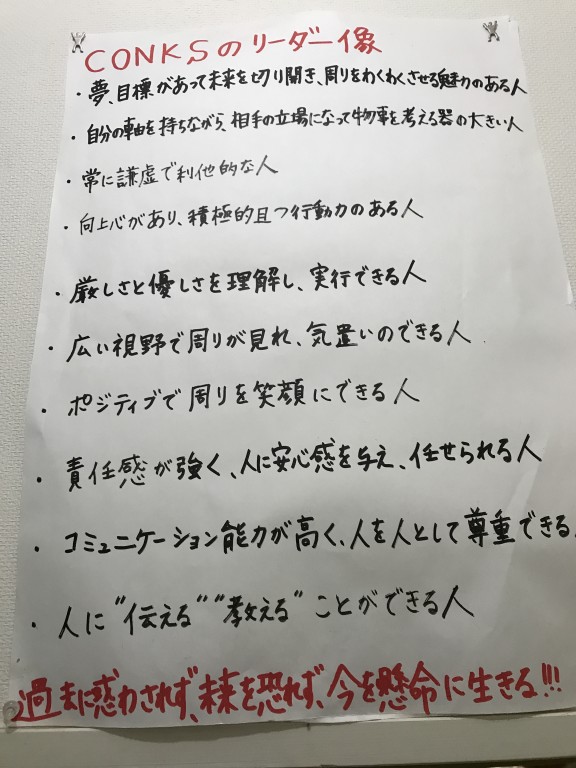 CONKSのリーダー像
・夢、目標があって未来を切り開き、周りをわくわくさせる魅力のある人
・自分の軸を持ちながら、相手の立場になって物事を考える器の大きい人
・常に謙虚で利他的な人
・向上心があり、積極的且つ行動力のある人
・厳しさと優しさを理解し、実行できる人
・広い視野で周りが見れ、気遣いのできる人
・ポジティブで周りを笑顔にできる人
・責任感が強く、人に安心感を与え、任せられる人
・コミュニケーション能力が高く、人を人として尊重できる
・人に"伝える""教える"ことができる人
過去に惑わされず、未来を恐れず、今を懸命に生きる!!!